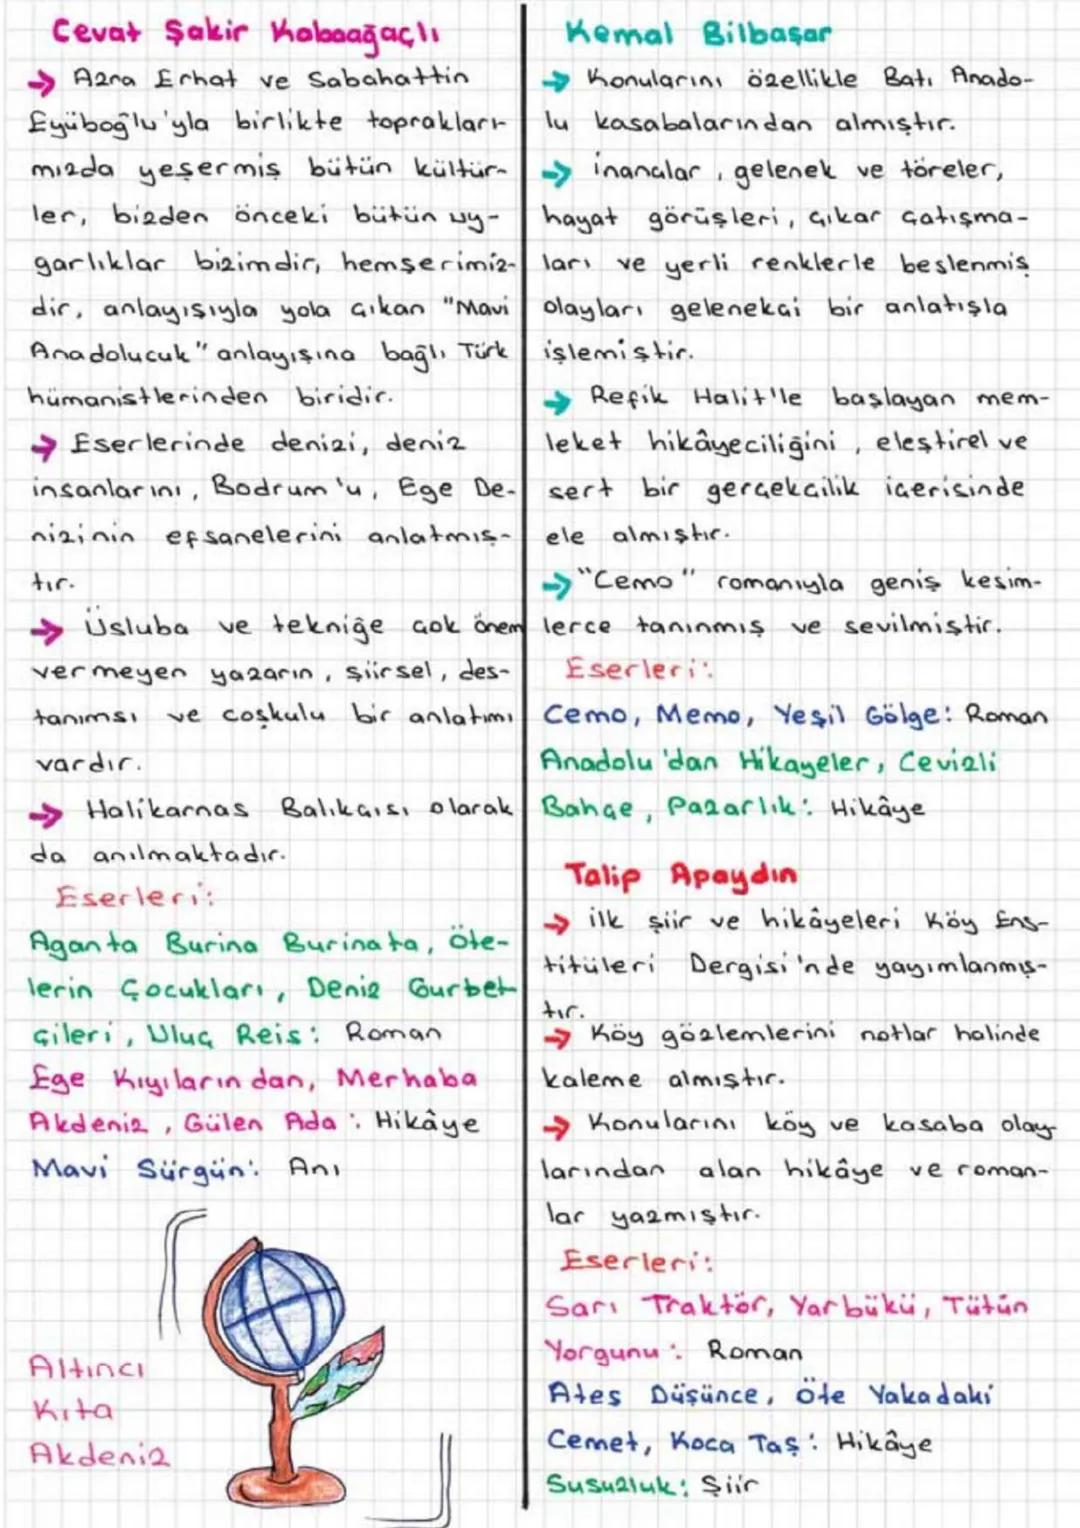 Cevat Şakir Kabaağaçlı
→ Azra Erhat ve Sabahattin
Eyüboğlu'yla birlikte toprakları-
mızda yeşermiş bütün kültür-
ler, bizden önceki bütün uy-
garlıklar bizimdir, hemşerimiz-
dir, anlayışıyla yola çıkan "Mavi
Anadolucuk" anlayışına bağlı Türk
hümanistlerinden biridir.
→ Eserlerinde denizi, deniz
insanlarını, Bodrum'u, Ege De-
nizinin efsanelerini anlatmış-
tır.
→ Üsluba ve tekniğe çok önem
vermeyen yazarın, şiirsel, des-
tanımsı ve coşkulu bir anlatımı
vardır.
→ Halikarnas Balıkçısı olarak
da anılmaktadır.
Eserleri:
Aganta Burina Burinata, Öte-
lerin Çocukları, Deniz Gurbet-
çileri, Uluç Reis: Roman
Ege Kıyılarından, Merhaba
Akdeniz, Gülen Ada: Hikâye
Mavi Sürgün: Anı
Altıncı
Kıta
Akdeniz
Kemal Bilbaşar
→ Konularını özellikle Batı Anado-
lu kasabalarından almıştır.
→ inançlar, gelenek ve töreler,
hayat görüşleri, çıkar çatışma-
ları ve yerli renklerle beslenmiş
olayları gelenekçi bir anlatışla
işlemiştir.
→ Refik Halit'le başlayan mem-
leket hikâyeciliğini, eleştirel ve
sert bir gerçekçilik içerisinde
ele almıştır.
→ "Cemo" romanıyla geniş kesim-
lerce tanınmış ve sevilmiştir.
Eserleri:
Cemo, Memo, Yeşil Gölge: Roman
Anadolu'dan Hikayeler, Cevizli
Bahçe, Pazarlık: Hikâye
Talip Apaydın
→ ilk şiir ve hikâyeleri Köy Ens-
titüleri Dergisi'nde yayımlanmış-
tır.
→ Köy gözlemlerini notlar halinde
kaleme almıştır.
→ Konularını köy ve kasaba olay-
larından alan hikâye ve roman-
lar yazmıştır.
Eserleri:
Sarı Traktör, Yarbükü, Tütün
Yorgunu: Roman
Ateş Düşünce, Öte Yakadaki
Cemet, Koca Taş: Hikâye
Susuzluk: Şiir